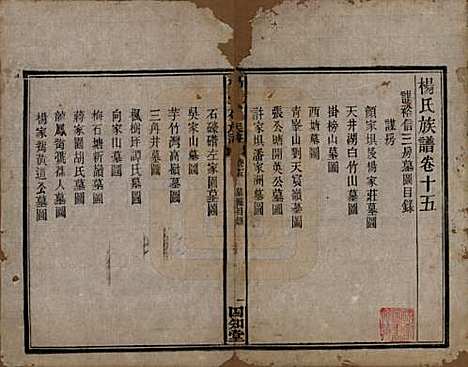 楊氏族譜卷十五
謹裕信三房墓圖目錄
謹房
顏家垻後楊家莊墓圖
天井湖白竹山墓圖
掛榜山墓圖
西塘墓圖
張公塘開英公墓圖
青峯山劉天寶嶺墓圖
許家垻潘家洲墓圖
石磢磄左家園墓圖
吳家山墓圖
芋竹灣高嶺墓圖
三冉井墓圖
楓樹坪譚氏墓圖
向家山墓圖
梅石塘新嶺墓圖
蔣家園胡氏墓圖
鳳喬孺人墓圖
楊家喬黃道公墓圖
族譜
一
四知堂